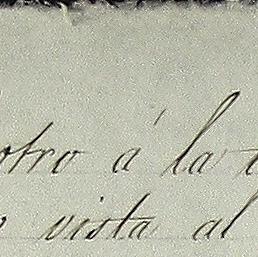 otro á la
vista al